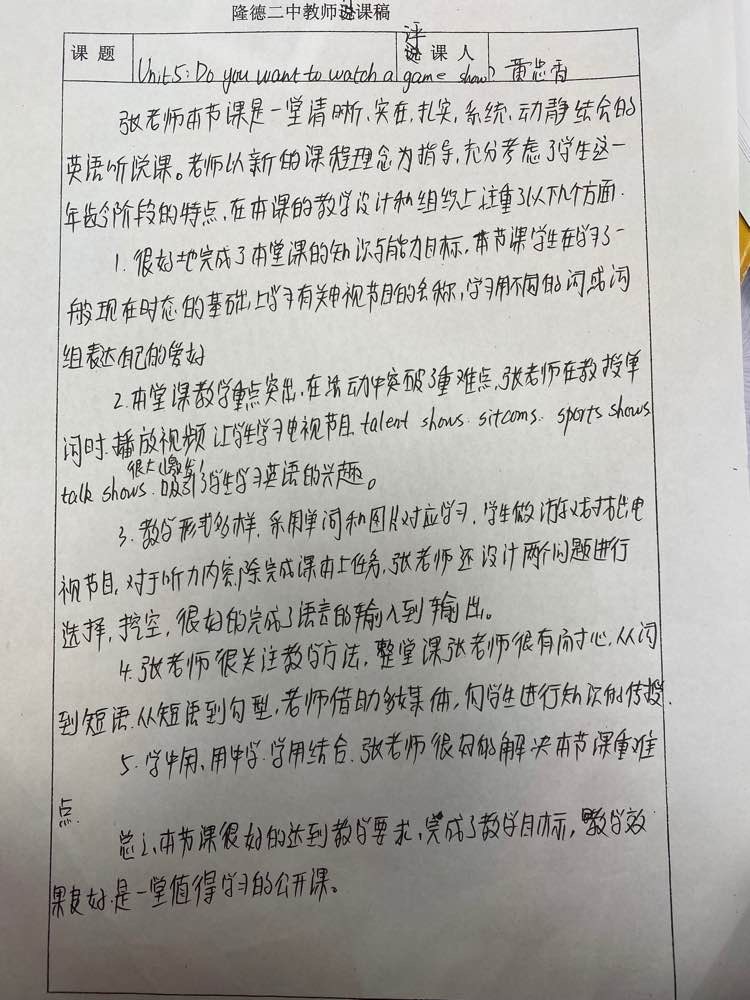 隆德二中教师评课稿
课题 Unit 5: Do you want to watch a game show? 评课人 黄岩香
张老师本节课是一堂清晰、实在，扎实，系统、动静结合的
英语听说课。老师以新的课程理念为指导，充分考虑了学生这一
年龄阶段的特点，在本课的教学设计和组织上注重了以下几个方面.
1. 很好地完成了本堂课的知识与能力目标，本节课学生在学习一
般现在时态的基础上学习有关电视节目的名称，学习用不同的词或词
组表达自己的爱好
2. 本堂课教学重点突出，在活动中突破了重难点，张老师在教授单
词时.播放视频让学生学习电视节目talent shows. sitcoms. sports shows
talk shows. 很大激发了学生学习英语的兴趣。
3. 教学形式多样，采用单词和图片对应学习，学生做游戏猜出电
视节目，对于听力内容，除完成课本上任务，张老师还设计两个问题进行
选择，挖空，很好的完成了语言的输入到输出。
4. 张老师很关注教学方法，整堂课张老师很有耐心，从词
到短语.从短语到句型，老师借助多媒体，向学生进行知识的传授.
5. 学中用、用中学.学用结合.张老师很好的解决本节课重难
点.
总之、本节课很好的达到教学要求，完成了教学目标，教学效
果良好.是一堂值得学习的公开课。